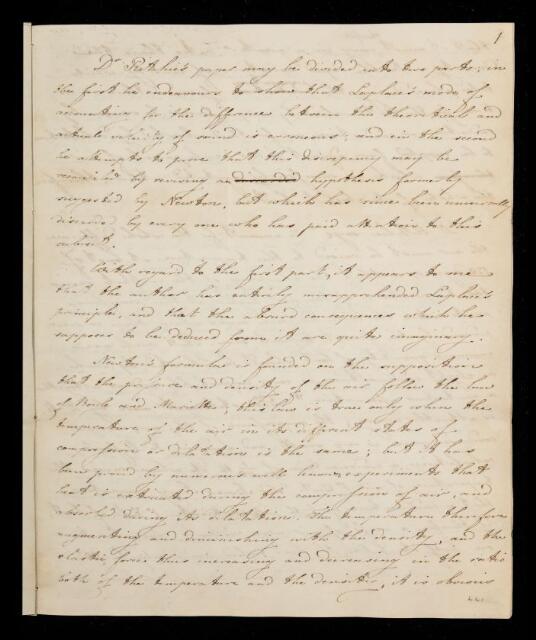 1
Dr Ritchie's paper may be divided into two parts; in
the first he endeavours to show that Laplace's mode of
accounting for the difference between the theoretical and
actual velocity of sound is erroneous; and in the second
he attempts to prove that this discrepancy may be
reconciled by reviving an hypothesis formerly
suggested by Newton, but which has since been universally
discarded by every one who has paid attention to this
subject.
With regard to the first part, it appears to me
that the author has entirely misapprehended Laplace's
principle, and that the absurd consequences which he
supposes to be deduced from it are quite imaginary.
Newton's formula is founded on the supposition
that the pressure and density of the air follow the law
of Boyle and Mariotte; this law is true only when the
temperature of the air in its different states of
compression or dilatation is the same; but it has
been proved by numerous well known experiments that
heat is extricated during the compression of air, and
absorbed during its dilatation. The temperature therefore
augmenting and diminishing with the density, and the
elastic force thus increasing and decreasing in the ratio
both of the temperature and the density, it is obvious